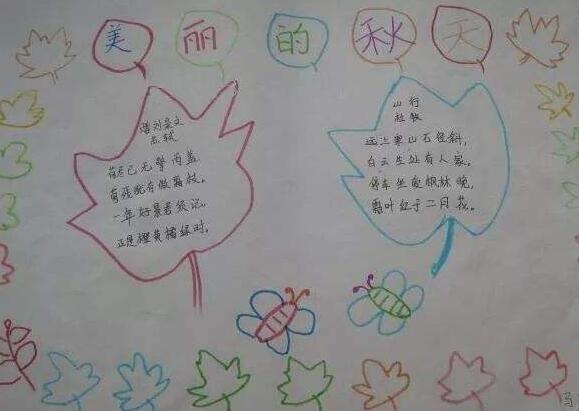 美丽的秋天
赠刘景文
苏轼
荷尽已无擎雨盖
菊残犹有傲霜枝。
一年好景君须记，
正是橙黄橘绿时。
山行
杜牧
远上寒山石径斜，
白云生处有人家。
停车坐爱枫林晚，
霜叶红于二月花。